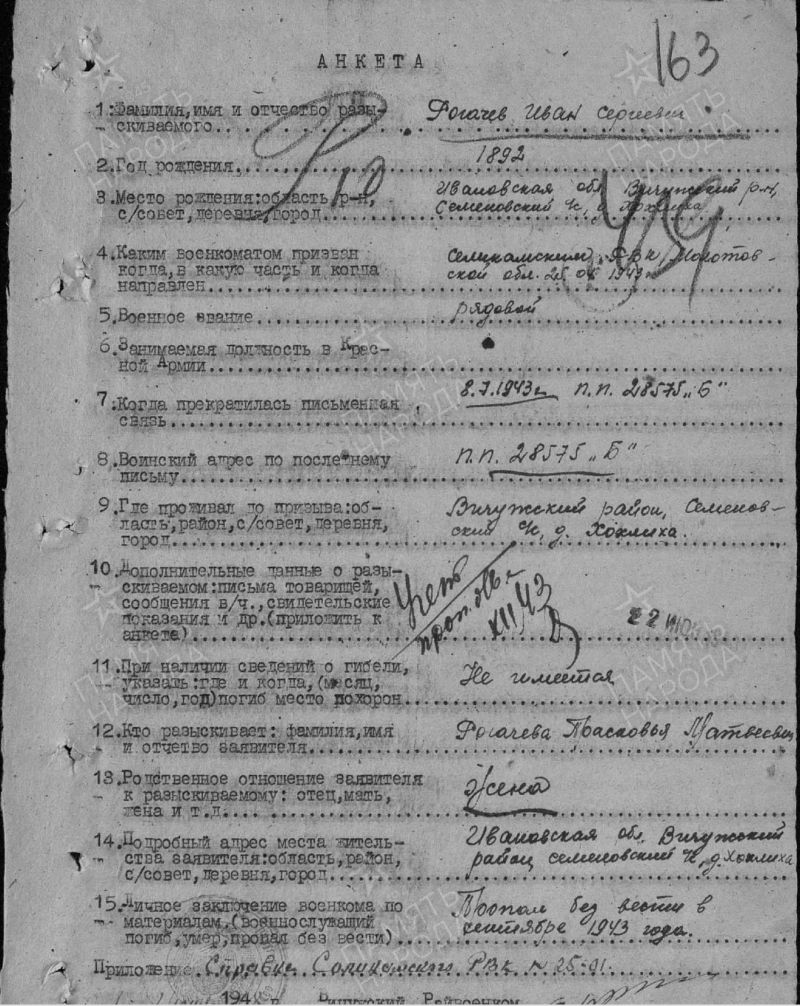 163
АНКЕТА
1. Фамилия, имя и отчество разы- Рогачев Иван Сергеевич
скиваемого
2. Год рождения 1892
3. Место рождения: область р-н, Ивановская обл. Вичужский р-н,
с/совет, деревня, город Семеновский с/с, д Хохлиха
4. Каким военкоматом призван Соликамским РВК, Молотов-
когда, в какую часть и когда ской обл. 1943
направлен
5. Военное звание рядовой
6. Занимаемая должность в Крас-
ной Армии
7. Когда прекратилась письменная 8.7.1943г. п.п. 28575 „Б"
связь
8. Воинский адрес по последнему п.п. 28575 „Б"
письму
9. Где проживал до призыва: об- Вичужский район, Семенов-
ласть, район, с/совет, деревня, ский с/с, д. Хохлиха.
город
10. Дополнительные данные о разы-
скиваемом: письма товарищей,
сообщения в/ч., свидетельские
показания и др. (приложить к
анкете)
XII 43
22
11. При наличии сведений о гибели,
указать: где и когда, (месяц, Не имеется
число, год) погиб место похорон
12. Кто разыскивает: фамилия, имя Рогачева Прасковья Матвеевна
и отчетво заявителя
13. Родственное отношение заявителя
к разыскиваемому: отец, мать, Жена
жена и т.д.
14. Подробный адрес места житель- Ивановская обл. Вичужский
ства заявителя: область, район, район, семеновский с/с, д. Хохлиха
с/совет, деревня, город
15. Личное заключение военкома по Пропал без вести в
материалам, (военнослужащий сентябре 1943 года.
погиб, умер, пропал без вести)
Приложение: Справка Соликамского РВК № 25-01.
194 г. Вичужский Райвоенком
ПАМЯТЬ НАРОДА